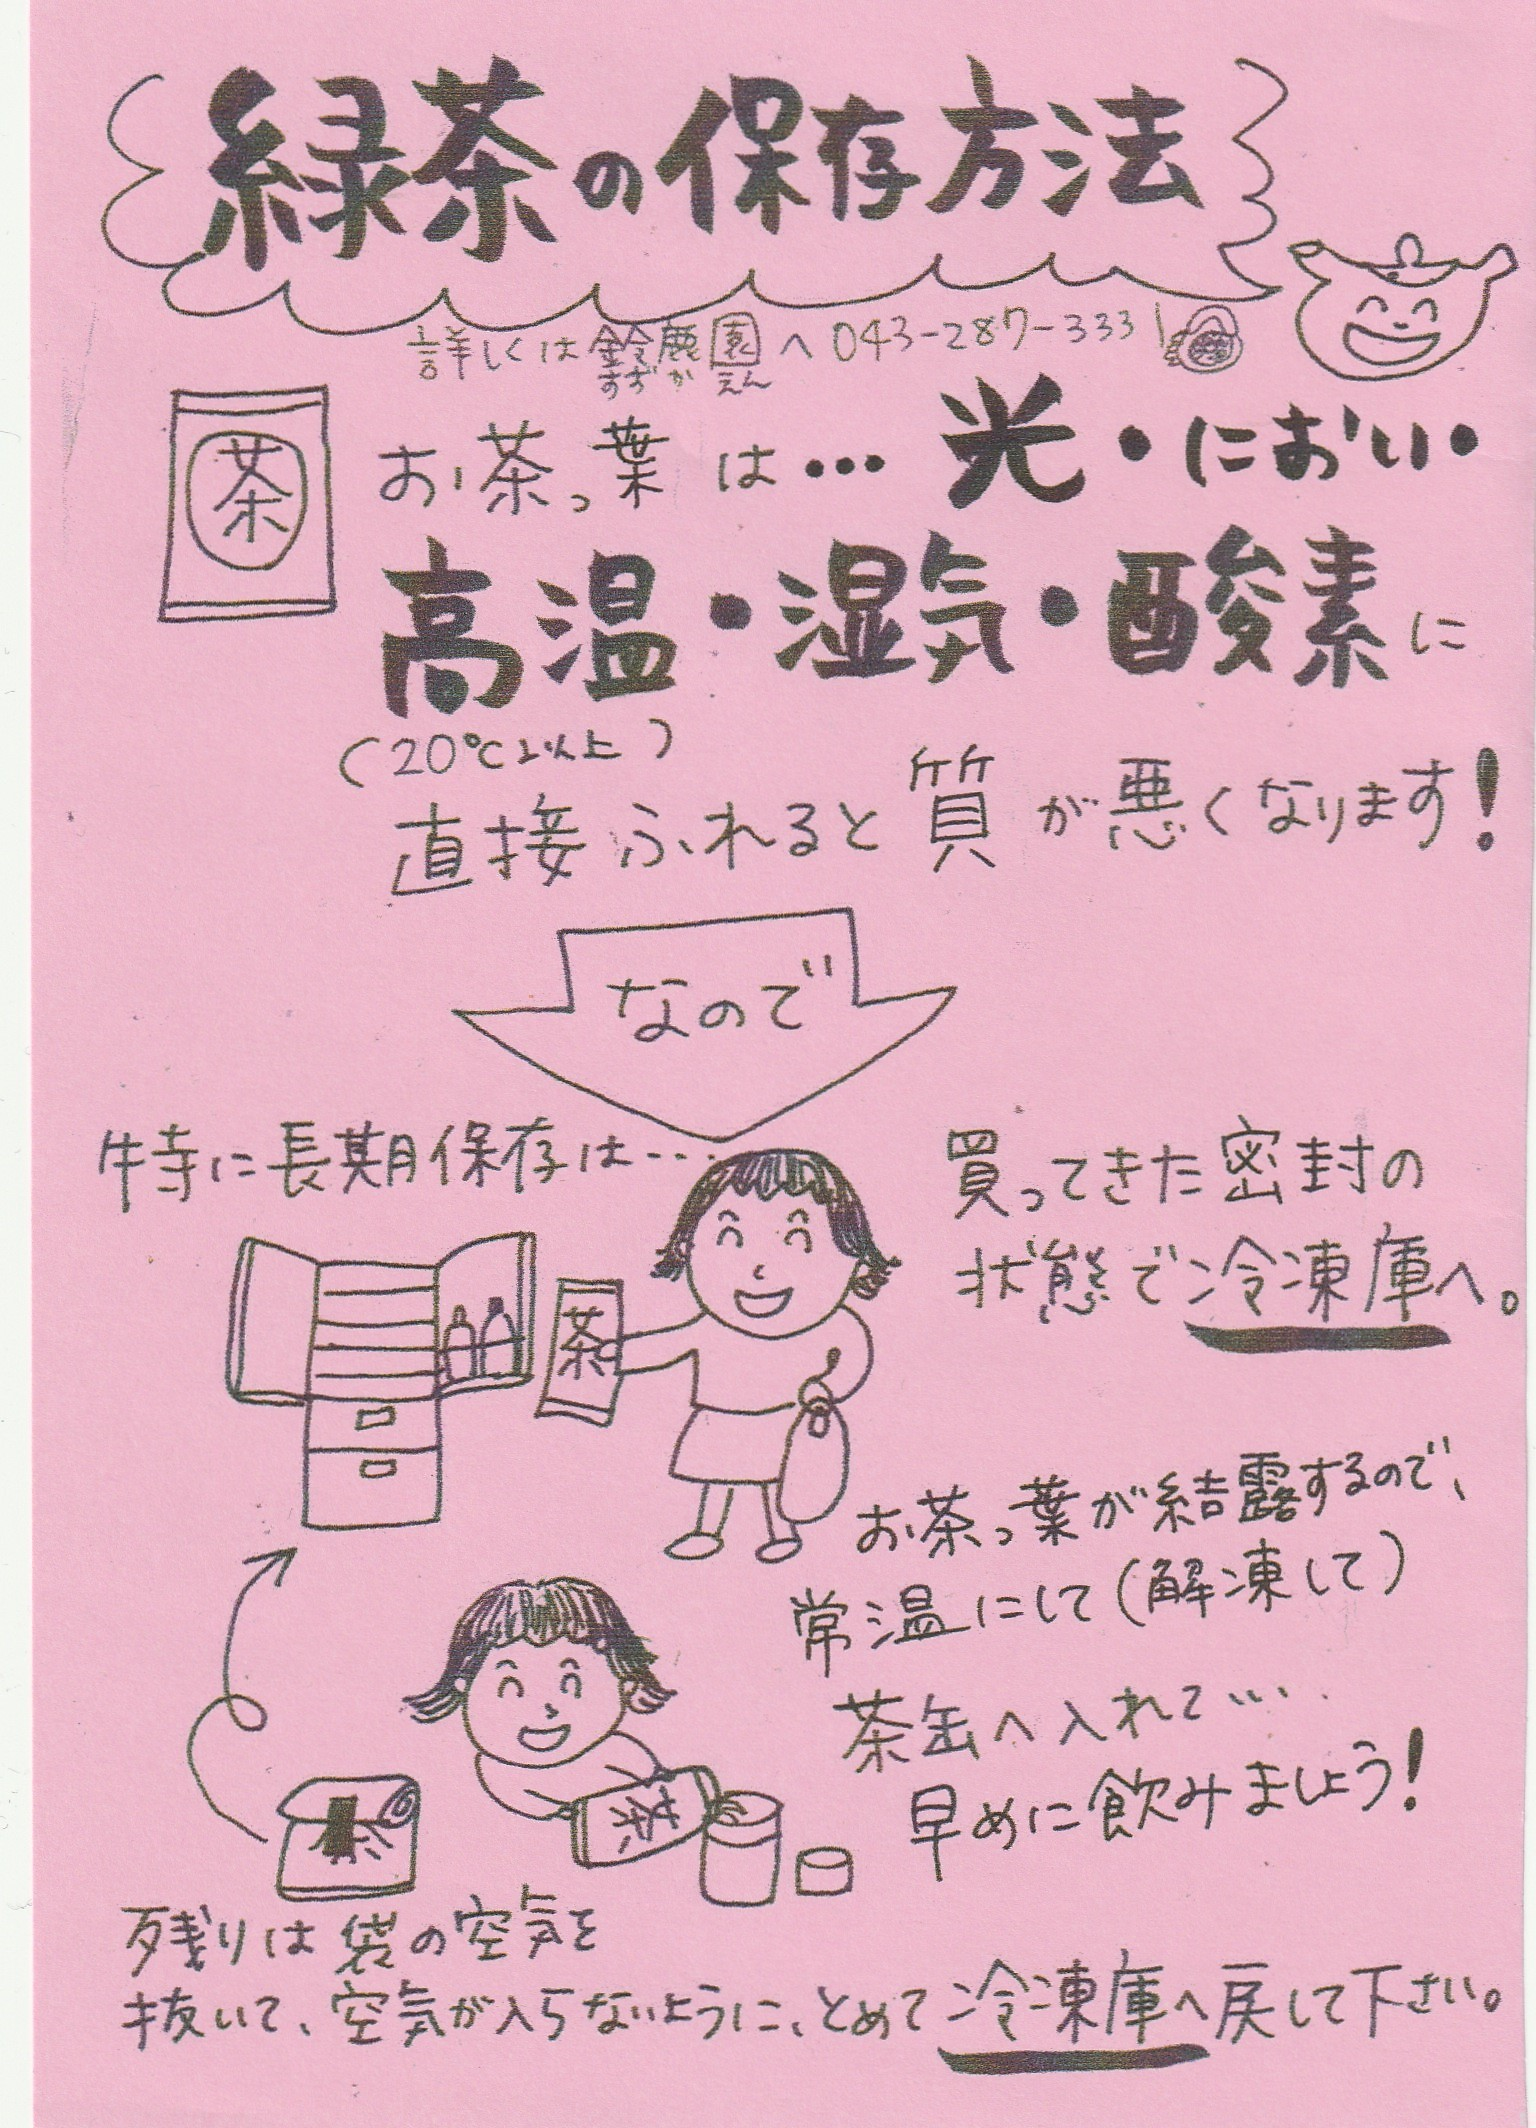 緑茶の保存方法
詳しくは鈴鹿園へ043-287-3331
すずかえん
茶
お茶っ葉は…光・におい・
高温・湿気・酸素に
(20℃以上)
直接ふれると質が悪くなります!
なので
特に長期保存は…
買ってきた密封の
状態で冷凍庫へ。
茶
お茶っ葉が結露するので、
常温にして(解凍して)
茶缶へ入れて…
早めに飲みましょう!
茶
茶
残りは袋の空気を
抜いて、空気が入らないように、とめて冷凍庫へ戻して下さい。